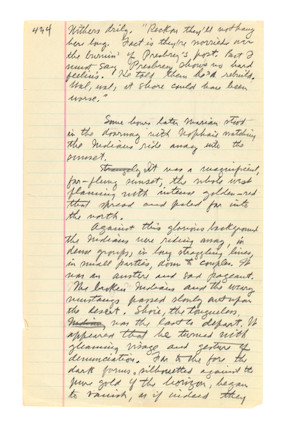 434
Withers drily. "Reckon they'll not hang
here long. Fact is they're worried over
the burnin' of Presbrey's post. But I
must say Presbrey shows no hard
feelins. He told them he'd rebuild.
Wal, wal, it shore could have been
worse."
Some hours later Marian stood
in the doorway with Nophaie watching
the Indians ride away into the
sunset.
It was a magnificent,
far-flung sunset, the whole west
flaming with intense golden-red
that spread and paled far into
the north.
Against this glorious background
the Indians were riding away, in
dense groups, in long straggling lines,
in small parties, down to couples. It
was an austere and sad pageant.
The broken Indians and the weary
mustangs passed slowly out upon
the desert. Shoie, the tongueless
was the last to depart. It
appeared that he turned with
gleaming visage and gesture of
denunciation. Far to the fore the
dark forms, silhouetted against the
pure gold of the horizon, began
to vanish, as if indeed they